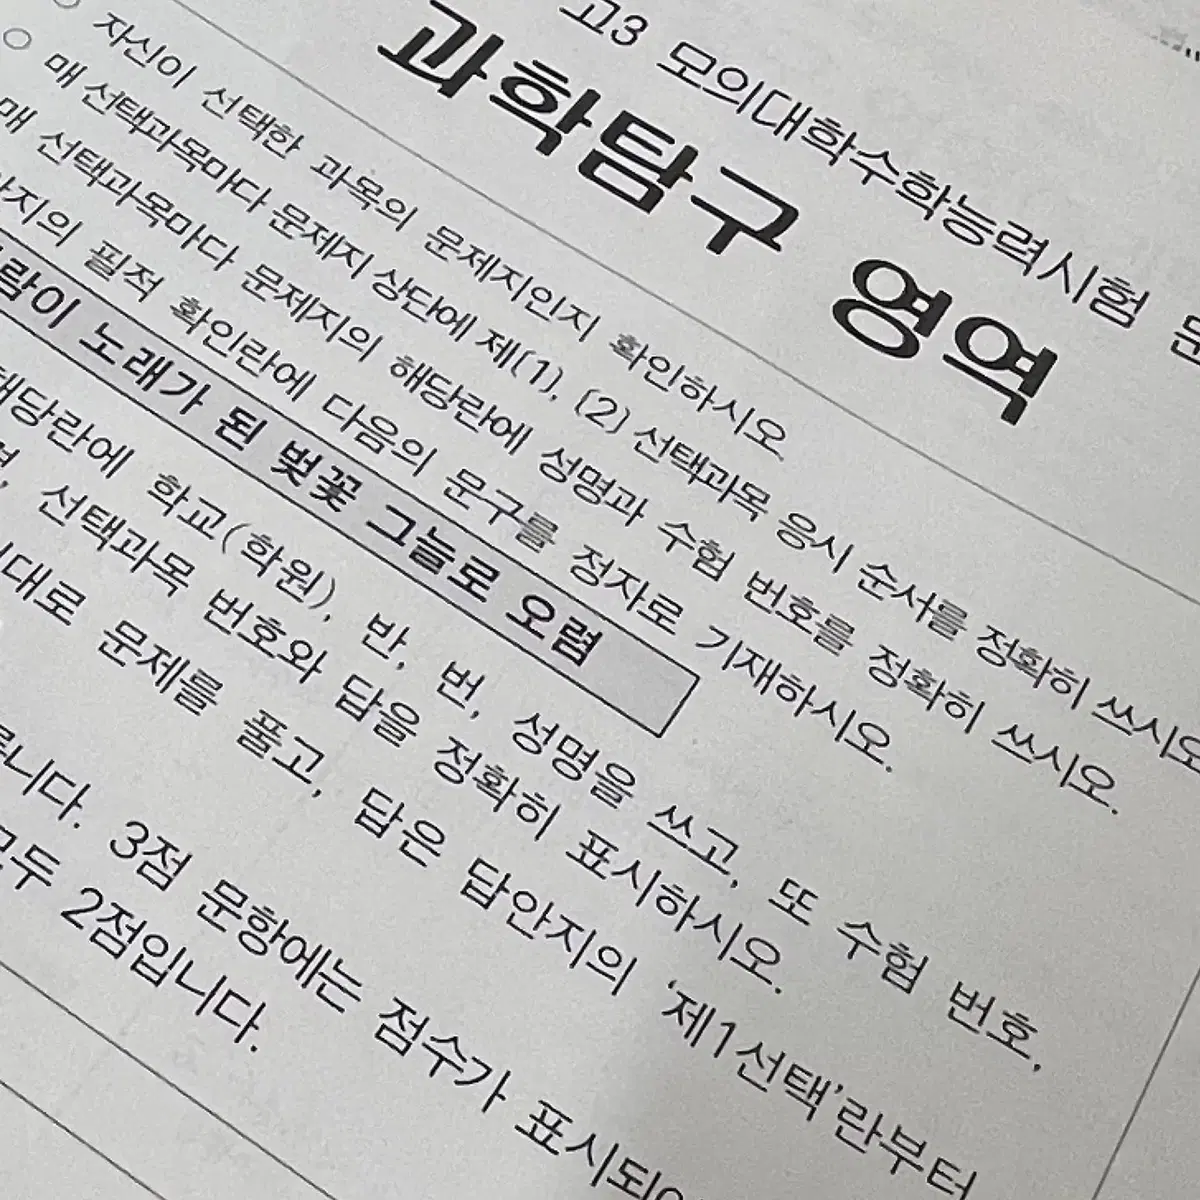 고3 모의대학수학능력시험
과학탐구 영역
○ 자신이 선택한 과목의 문제지인지 확인하시오.
○ 매 선택과목마다 문제지 상단에 제(1), (2) 선택과목 응시 순서를 정확히 쓰시오
매 선택과목마다 문제지의 해당란에 성명과 수험 번호를 정확히 쓰시오.
필적 확인란에 다음의 문구를 정자로 기재하시오.
노래가 된 벚꽃 그늘로 오렴
해당란에 학교(학원), 반, 번, 성명을 쓰고, 또 수험 번호,
선택과목 번호와 답을 정확히 표시하시오.
문제를 풀고, 답은 답안지의 ‘제1선택’란부터
3점 문항에는 점수가
모두 2점입니다.